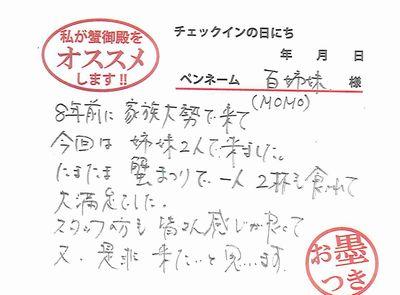 私が蟹御殿を
オススメ
します!!
チェックインの日にち
年 月 日
ペンネーム 百姉妹 様
(MOMO)
8年前に 家族大勢で来て
今回は 姉妹2人で来ました。
たまたま 蟹まつりで、一人 2杯も食べれて
大満足でした。
スタッフの方も 皆さん感じが良くて
又、是非 来たいと思います。
お墨
つき